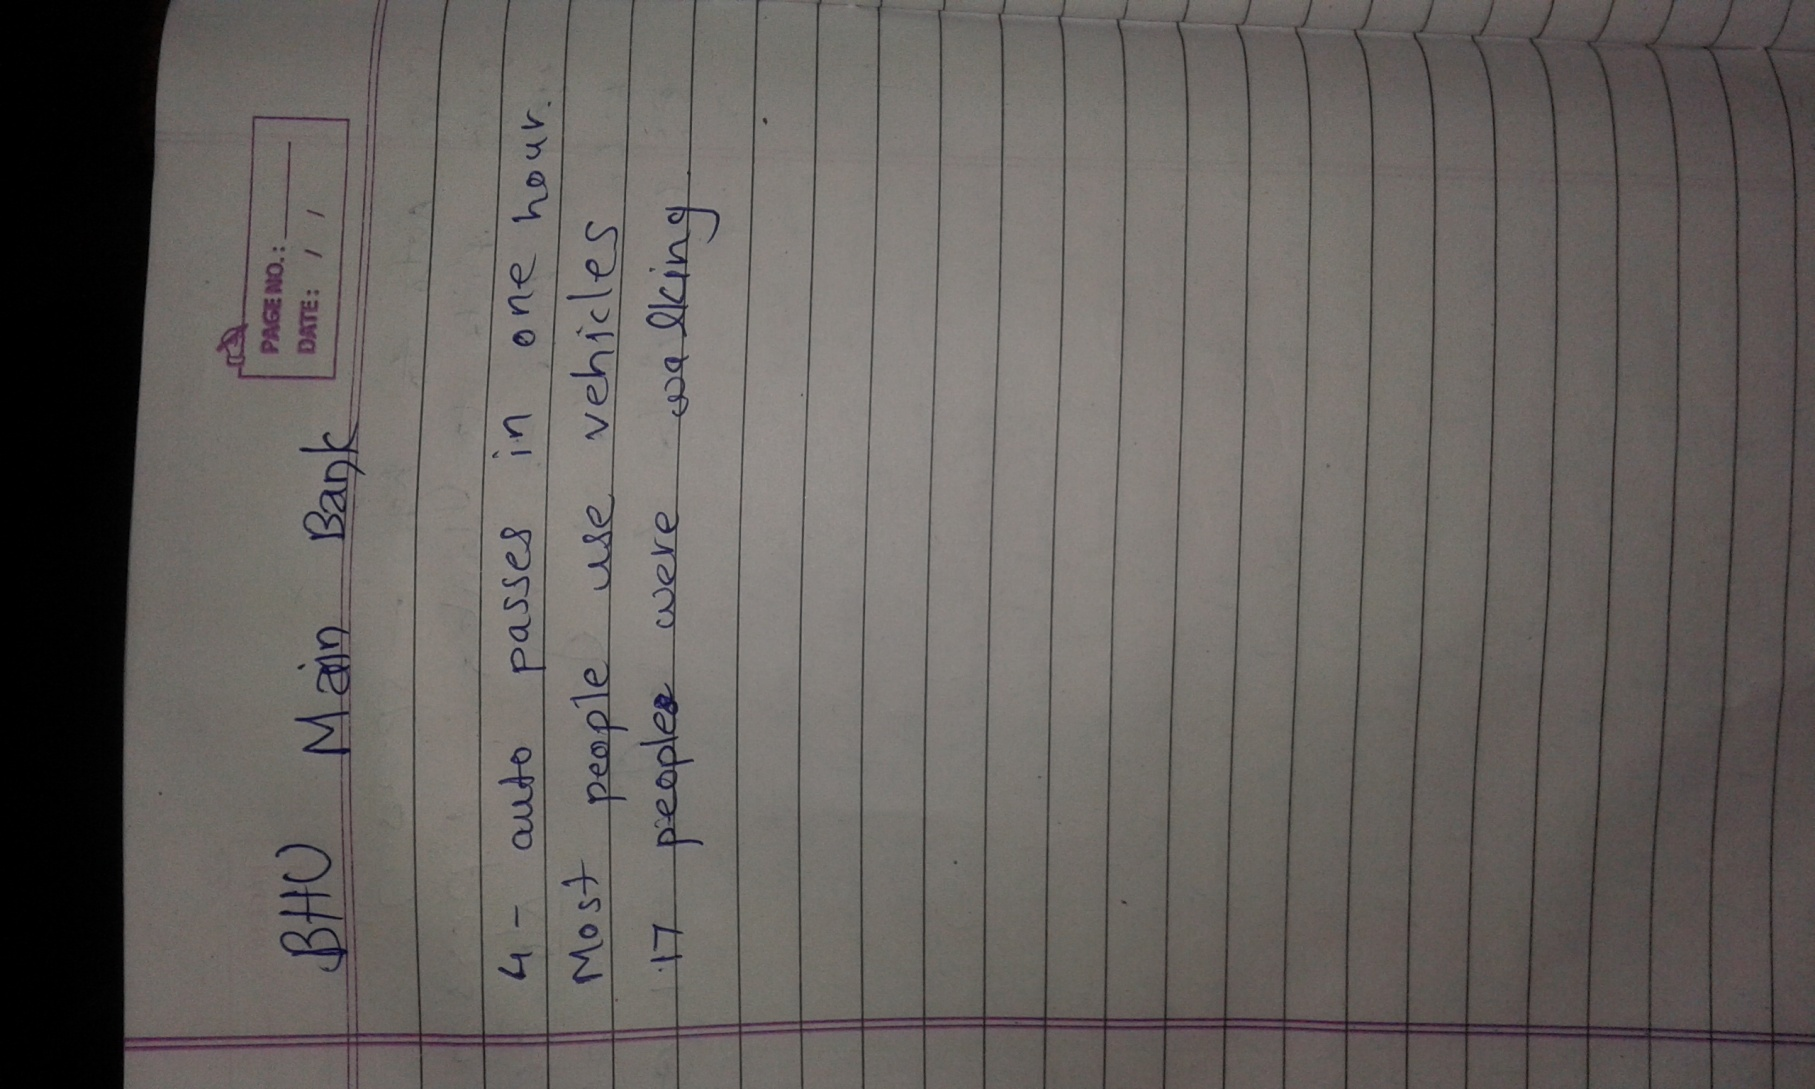 PAGE NO.:
DATE: / /
BHU Main Bank
4 - auto passes in one hour.
Most people use vehicles
17 people were walking